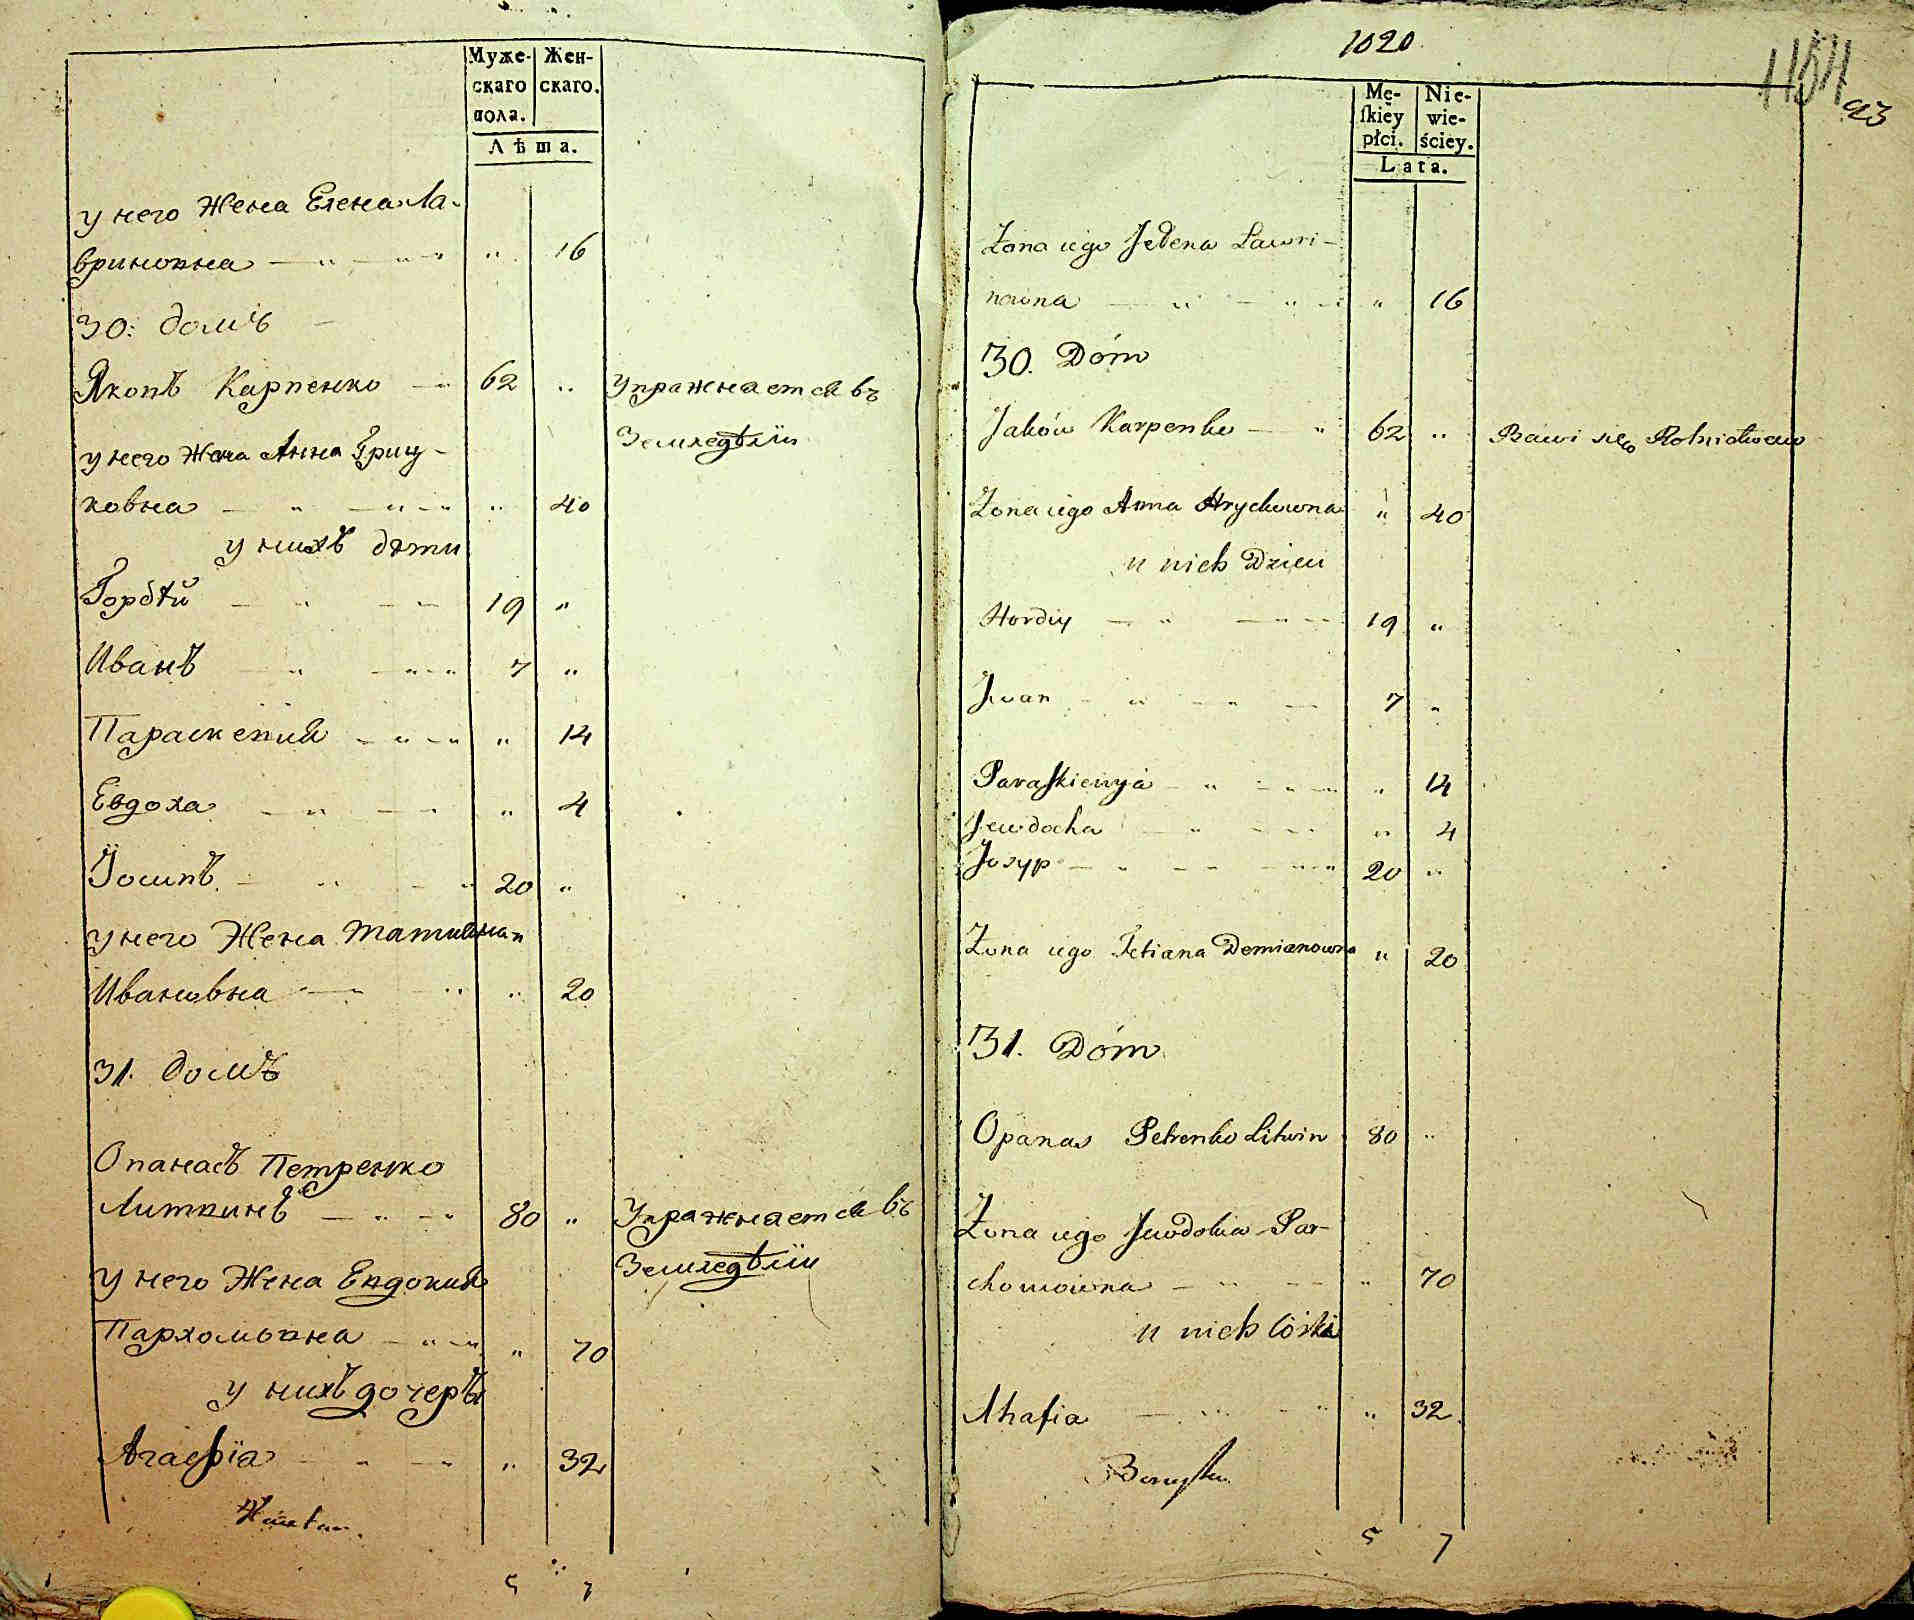 Муже- Жен-
скаго скаго.
пола.
Лѣта.
у него Жена Елена Ла-
вриновна 16
30: домъ
Яковъ Карпенко 62 Упражнается въ
Земледѣлiи
у него Жена Анна Гриц-
ковна 40
у нихъ дѣти
Гордѣй 19
Иванъ 7
Параскевия 14
Евдоха 4
Iосипъ 20
у него Жена Татияна
Ивановна 20
31. домъ
Опанасъ Петренко
Литвинъ 80 Упражнается въ
Земледѣлiи
у него Жена Евдокия
Пархомовна 70
у нихъ дочерѣ
Агафiа 32
5 7
1020
1154
93
Mę- Nie-
ſkiey wie-
płci. ściey.
Lata.
Żona iego Jełena Lawri-
nowna 16
30. Dóm
Jaków Karpenko 62 Bawi się Rolnictwem
Żona iego Anna Hryckowna 40
u nich Dzieci
Hordiy 19
Jwan 7
Paraſkiewya 14
Jewdocha 4
Josyp 20
Żona iego Tetiana Demianowna 20
31. Dóm
Opanas Petrenko Litwin 80
Żona iego Jewdokia Par-
chomowna 70
u nich Córka
Ahafia 32
5 7